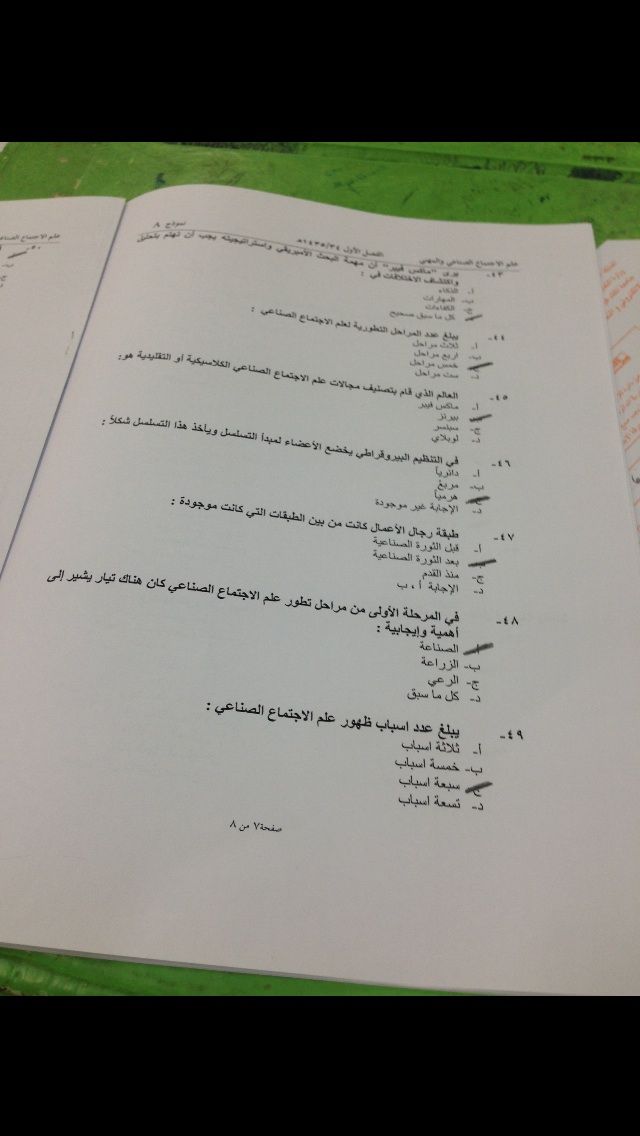 علم الاجتماع الصناعي والمهني الفصل الأول ١٤٣٥/٣٤هـ نموذج ٨
٤٣- يرى "ماكس فيبر" أن مهمة البحث الأمبريقي واستراتيجيته يجب أن تهتم بتحليل
واكتشاف الاختلافات في :
أ- الذكاء
ب- المهارات
ج- الكفاءات
كل ما سبق صحيح
٤٤- يبلغ عدد المراحل التطورية لعلم الاجتماع الصناعي :
أ- ثلاث مراحل
ب- اربع مراحل
خمس مراحل
د- ست مراحل
٤٥- العالم الذي قام بتصنيف مجالات علم الاجتماع الصناعي الكلاسيكية أو التقليدية هو:
أ- ماكس فيبر
بيرنز
ج- سبلسر
د- لوبلاي
٤٦- في التنظيم البيروقراطي يخضع الأعضاء لمبدأ التسلسل ويأخذ هذا التسلسل شكلاً :
أ- دائرياً
ب- مربع
ج- هرمياً
د- الإجابة غير موجودة
٤٧- طبقة رجال الأعمال كانت من بين الطبقات التي كانت موجودة :
أ- قبل الثورة الصناعية
بعد الثورة الصناعية
ج- منذ القدم
د- الإجابة أ ، ب
٤٨- في المرحلة الأولى من مراحل تطور علم الاجتماع الصناعي كان هناك تيار يشير إلى
أهمية وإيجابية :
أ- الصناعة
ب- الزراعة
ج- الرعي
د- كل ما سبق
٤٩- يبلغ عدد اسباب ظهور علم الاجتماع الصناعي :
أ- ثلاثة اسباب
ب- خمسة اسباب
ج- سبعة اسباب
د- تسعة اسباب
صفحة ٧ من ٨
علم الاجتماع الصناعي
٥٠-